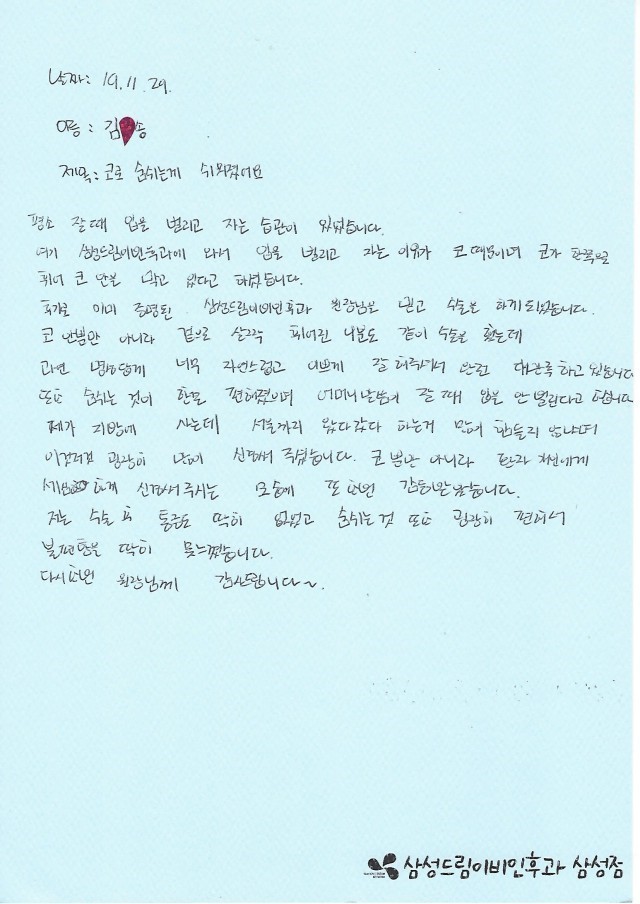 날짜: 19. 11. 29.
이름: 김 송
제목: 코로 숨쉬는게 쉬워졌어요
평소 잘때 입을 벌리고 자는 습관이 있었습니다.
여기 삼성드림이비인후과에 와서 입을 벌리고 자는 이유가 코 때문이며 코가 한쪽으로
휘어 코 안을 막고 있다고 하셨습니다.
후기로 이미 증명된 삼성드림이비인후과 원장님을 믿고 수술을 하게 되었습니다.
코 안뿐만 아니라 겉으로 살그락 휘어진 부분도 같이 수술을 했는데
과연 명성답게 너무 자연스럽고 이쁘게 잘 해주셔서 만족하고 있습니다
또한 숨쉬는 것이 한결 편해졌으며 어머니 말씀이 잘 때 입을 안 벌린다고 합니다
제가 지방에 사는데 서울까지 왔다갔다 하는거 많이 힘들지 않냐며
이것저것 굉장히 많이 신경써 주셨습니다. 코 뿐만 아니라 환자 자신에게
세심하게 신경써 주시는 모습에 또 한번 감동받았습니다.
저는 수술 후 통증도 딱히 없었고 숨쉬는 것 또한 굉장히 편해서
불편함을 딱히 못느꼈습니다.
다시한번 원장님께 감사드립니다~.
삼성드림이비인후과 삼성점